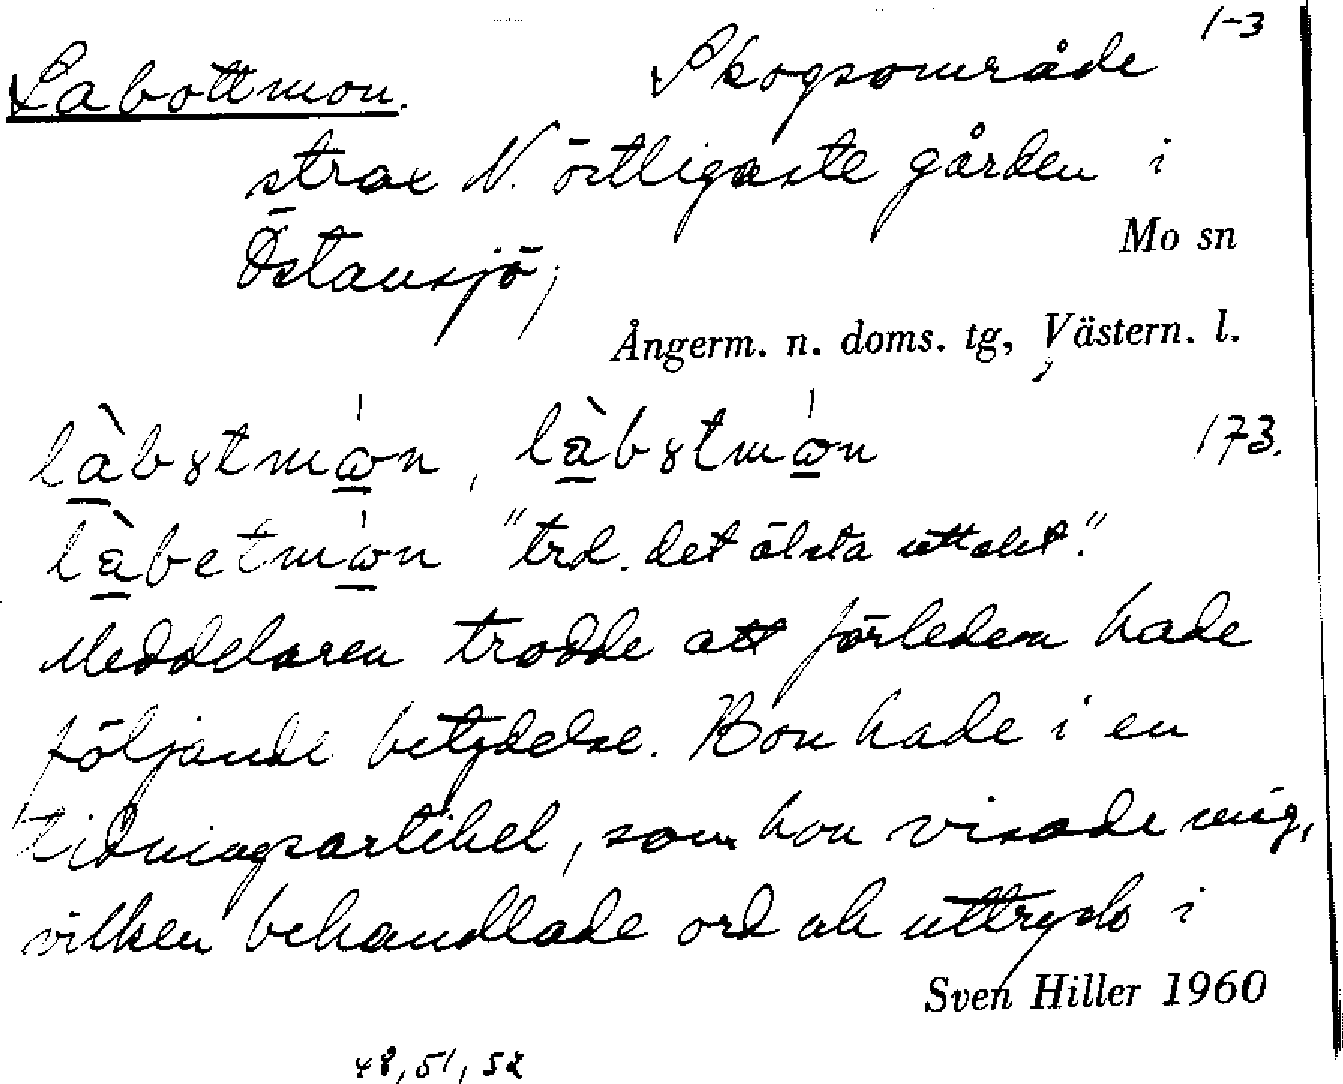 1-3
Labottmon. Skogsområde
strax N. östligaste gården i
Östansjö,
Mo sn
Ångerm. n. doms. tg, Västern. l.
173.
"trd. det älsta uttalet."
Meddelaren trodde att förleden hade
följande betydelse. Hon hade i en
tidningsartikel, som hon visade mig,
vilken behandlade ord och uttryck i
Sven Hiller 1960
48, 51, 52